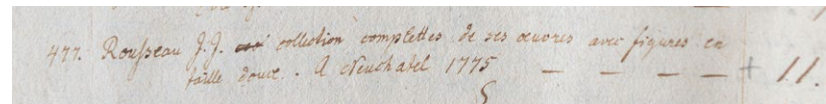 477. Rousseau J.J. collection complettes de ses œuvres avec figures en
taille douce. A Neuchatel 1775 — — — — + 11.